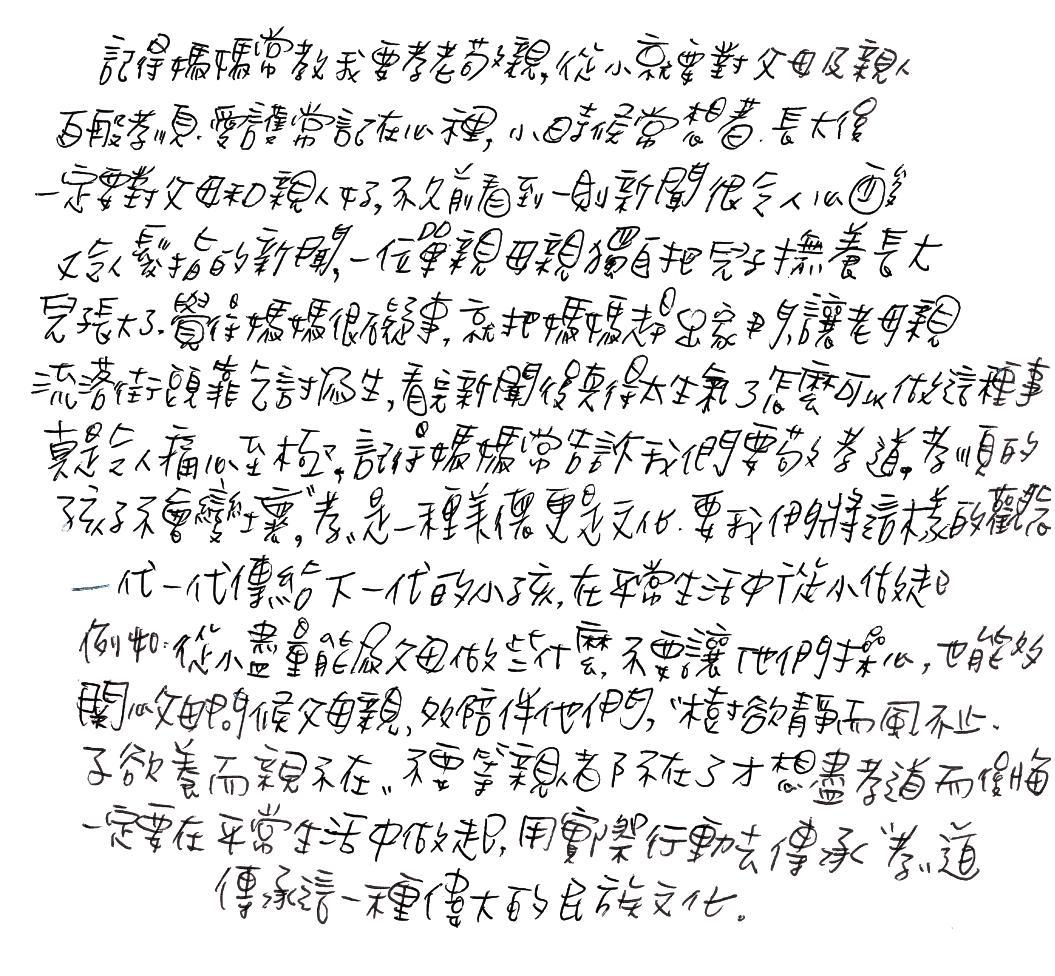 記得媽媽常教我要孝老敬親,從小就要對父母及親人
百般孝順.愛護常記在心裡,小時候常想著.長大後
一定要對父母和親人好,不久前看到一則新聞很令人心酸
又令人髮指的新聞,一位單親母親獨自把兒子撫養長大
兒長大了.覺得媽媽很礙事,就把媽媽趕出家門,讓老母親
流落街頭靠乞討為生,看完新聞後真得太生氣了怎麼可以做這種事
真是令人痛心至極,記得媽媽常告訴我們要敬孝道,孝順的
孩子不會變壞,"孝"是一種美德更是文化.要我們將這樣的觀念
一代一代傳給下一代的小孩,在平常生活中從小做起
例如:從小盡量能為父母做些什麼,不要讓他們操心,也能多
關心父母問候父母親,多陪伴他們,"樹欲靜而風不止.
子欲養而親不在"不要等親者不在了才想盡孝道而後悔
一定要在平常生活中做起,用實際行動去傳承"孝"道
傳承這一種偉大的民族文化。